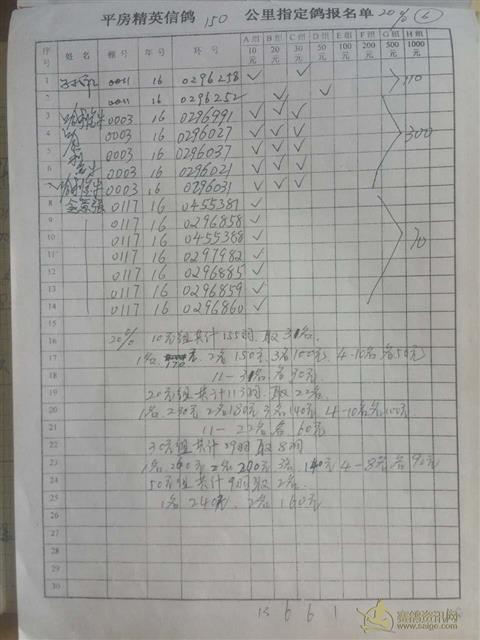 平房精英信鸽 150 公里指定鸽报名单 20% 6
序号 姓名 棚号 年号 环号 A组10元 B组20元 C组30元 D组50元 E组100元 F组200元 G组500元 H组1000元
1 0011 16 0296258 ✓ ✓
2 0011 16 0296252 ✓ ✓ 110
3 0003 16 0296991 ✓ ✓ ✓
4 0003 16 0296027 ✓ ✓ ✓
5 0003 16 0296037 ✓ ✓ ✓ 300
6 0003 16 0296021 ✓ ✓ ✓
7 0003 16 0296031 ✓ ✓ ✓
8 0117 16 0455381 ✓
9 0117 16 0296858 ✓
10 0117 16 0455388 ✓
11 0117 16 0297982 ✓ 70
12 0117 16 0296885 ✓
13 0117 16 0296859 ✓
14 0117 16 0296860 ✓
15
16 20% 10元组共计155羽. 取31名.
17 1名 170元 2名150元 3名100元 4-10名各50元
18 11-31名 各30元
19 20元组共计113羽. 取22名
20 1名 230元 2名180元 3名140元 4-10名各100元
21 11-22名各60元
22 30元组共计39羽取8羽
23 1名 260元 2名200元 3名 140元 4-8名各90元
24 50元组共计9羽取2名.
25 1名 240元. 2名 160元
26
27
28
29
30
13 6 6 1
赛鸽资讯网
www.saige.com